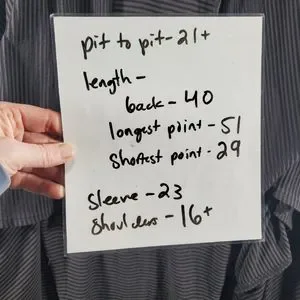 pit to pit - 21+
length -
back - 40
longest point - 51
Shortest point - 29
Sleeve - 23
Shoulders - 16+